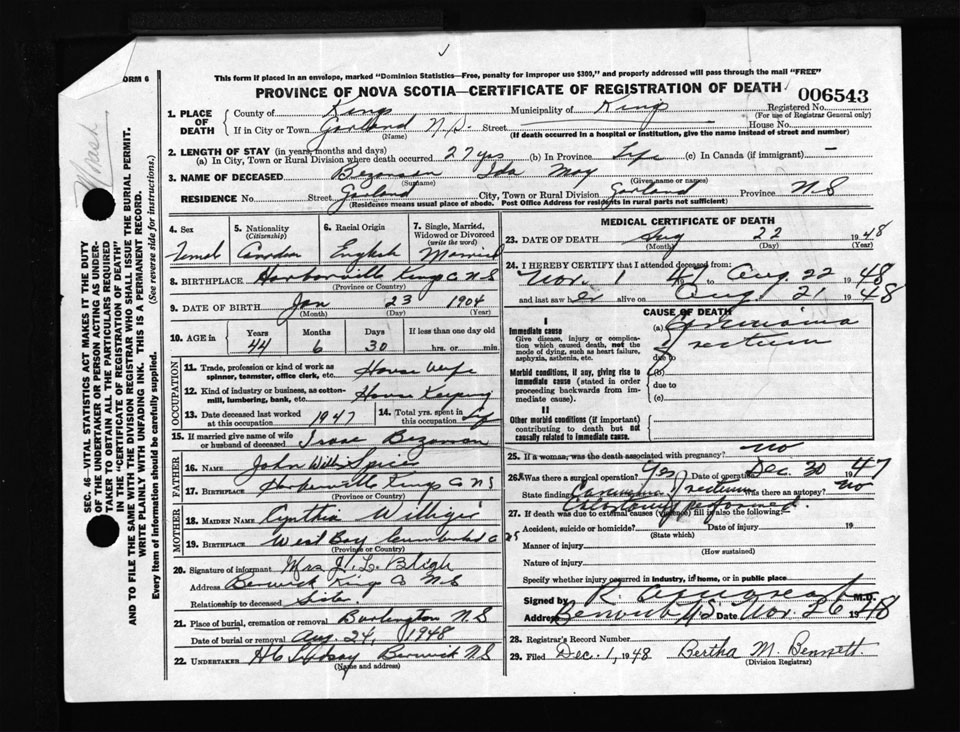 This form if placed in an envelope, marked "Dominion Statistics—Free, penalty for improper use $300," and properly addressed will pass through the mail "FREE"
ORM 6
PROVINCE OF NOVA SCOTIA—CERTIFICATE OF REGISTRATION OF DEATH
006543
1. PLACE OF DEATH
County of Kings Municipality of Kings Registered No.
(For use of Registrar General only)
If in City or Town Garland N.S. Street House No.
(Name) (If death occurred in a hospital or institution, give the name instead of street and number)
2. LENGTH OF STAY (in years, months and days)
(a) In City, Town or Rural Division where death occurred 27 yrs (b) In Province Life (c) In Canada (if immigrant) —
3. NAME OF DECEASED Bezanson Ida May
(Surname) (Given name or names)
RESIDENCE No. Street Garland City, Town or Rural Division Garland Province N S
(Residence means usual place of abode. Post Office Address for residents in rural parts not sufficient)
4. Sex 5. Nationality (Citizenship) 6. Racial Origin 7. Single, Married, Widowed or Divorced (write the word)
Female Canadian English Married
8. BIRTHPLACE Harborville Kings Co N S
(Province or Country)
9. DATE OF BIRTH Jan 23 1904
(Month) (Day) (Year)
10. AGE in Years Months Days If less than one day old
44 6 30 hrs. or min.
OCCUPATION
11. Trade, profession or kind of work as spinner, teamster, office clerk, etc. House Wife
12. Kind of industry or business, as cotton-mill, lumbering, bank, etc. House Keeping
13. Date deceased last worked at this occupation 1947 14. Total yrs. spent in this occupation Life
15. If married give name of wife or husband of deceased Isaac Bezanson
FATHER
16. Name John Spicer
17. Birthplace Harborville Kings Co N S
MOTHER
18. MAIDEN NAME Cynthia
19. BIRTHPLACE West Bay Cumberland Co
(Province or Country)
20. Signature of informant Mrs. H. L. Bligh
Address Berwick Kings Co N S
Relationship to deceased Sister
21. Place of burial, cremation or removal Burlington N S
Date of burial or removal Aug. 24, 1948
22. UNDERTAKER Lindsay Berwick N S
(Name and address)
MEDICAL CERTIFICATE OF DEATH
23. DATE OF DEATH Aug 22 1948
(Month) (Day) (Year)
24. I HEREBY CERTIFY that I attended deceased from:
Nov. 1 47 to Aug. 22 1948
and last saw her alive on Aug 21 1948
CAUSE OF DEATH
I
Immediate cause (a) Carcinoma
Give disease, injury or complication which caused death, not the mode of dying, such as heart failure, asphyxia, asthenia, etc.
of rectum
due to
Morbid conditions, if any, giving rise to immediate cause (stated in order proceeding backwards from immediate cause).
(b)
due to
(c)
II
Other morbid conditions (if important) contributing to death but not causally related to immediate cause.
25. If a woman, was the death associated with pregnancy? no
26. Was there a surgical operation? Yes Date of operation Dec. 30 1947
State finding Carcinoma of rectum Was there an autopsy? no
Colostomy performed.
27. If death was due to external causes (violence) fill in also the following:
Accident, suicide or homicide? Date of injury 19
(State which)
Manner of injury
(How sustained)
Nature of injury
Specify whether injury occurred in industry, in home, or in public place
Signed by R. M.D.
Address Berwick N.S. Date Nov. 26 1948
28. Registrar's Record Number
29. Filed Dec. 1, 1948 Bertha M. Bennett.
(Division Registrar)
SEC. 46—VITAL STATISTICS ACT MAKES IT THE DUTY
OF THE UNDERTAKER OR PERSON ACTING AS UNDER-
TAKER TO OBTAIN ALL THE PARTICULARS REQUIRED
IN THE "CERTIFICATE OF REGISTRATION OF DEATH"
AND TO FILE THE SAME WITH THE DIVISION REGISTRAR WHO SHALL ISSUE THE BURIAL PERMIT.
WRITE PLAINLY WITH UNFADING INK. THIS IS A PERMANENT RECORD.
Every item of information should be carefully supplied. (See reverse side for instructions.)